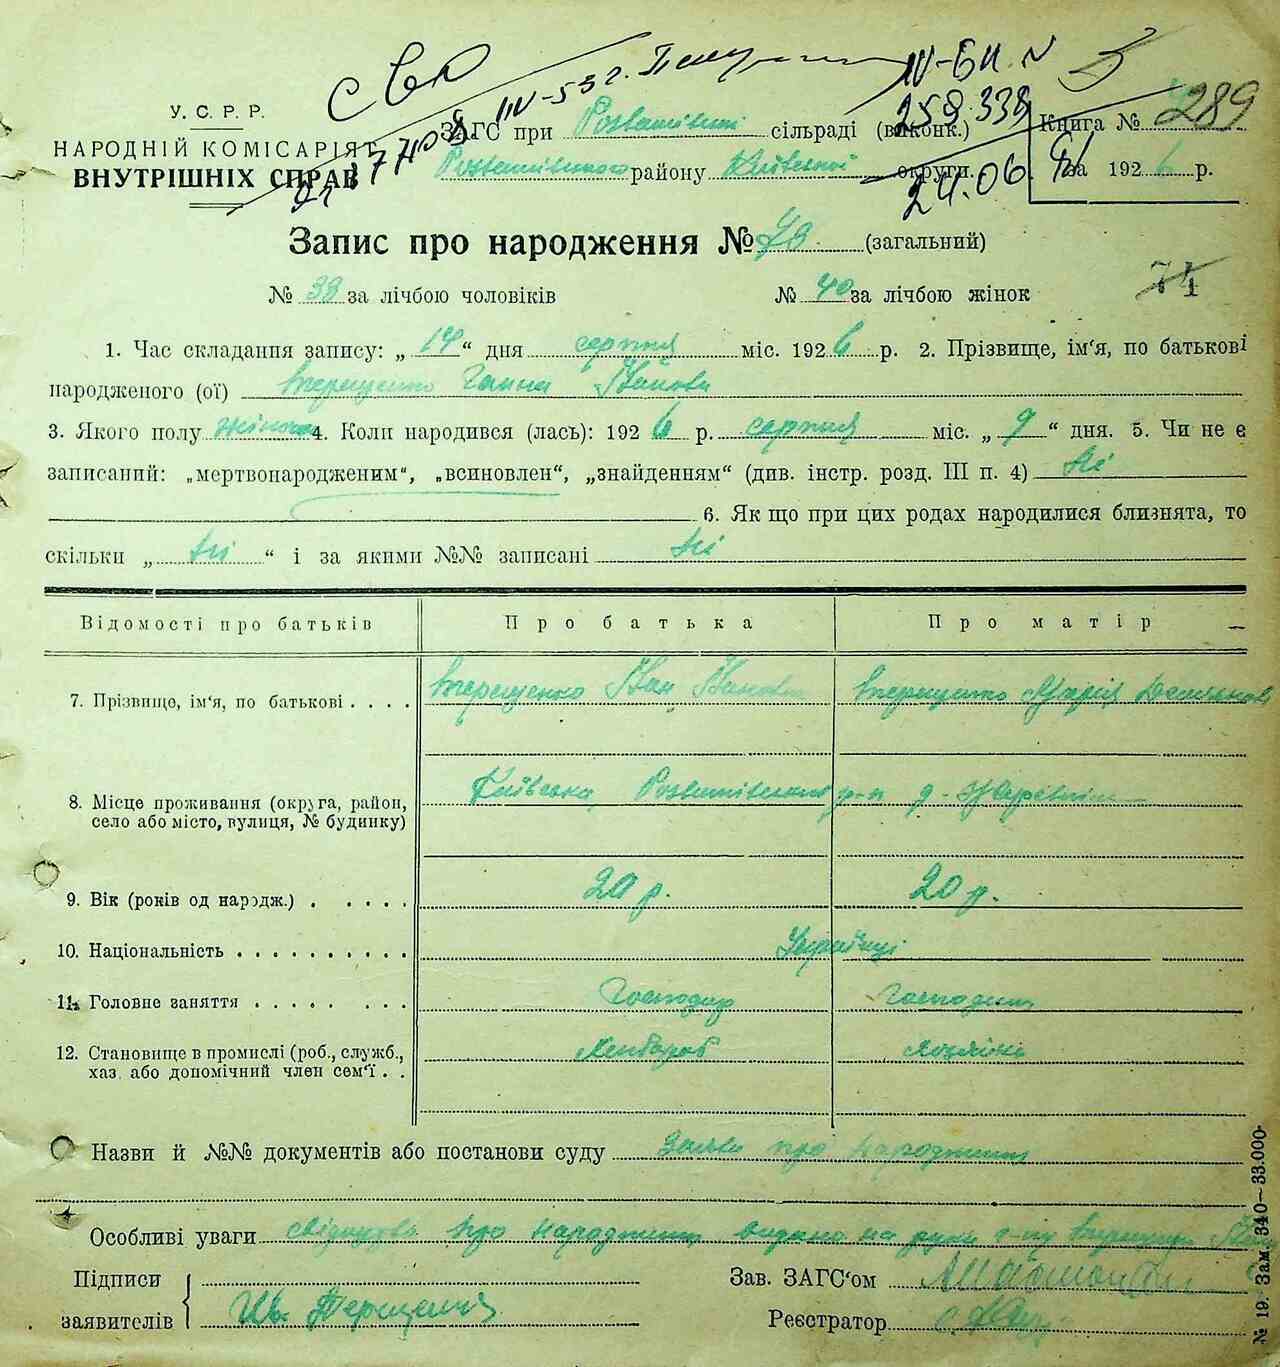 У. С. Р. Р.
НАРОДНІЙ КОМІСАРІЯТ
ВНУТРІШНІХ СПРАВ
IV-53 г.
IV-61 г.
258.338
24.06.61
ЗАГС при Розважівській сільраді (виконк.)
Розважівського району Київської округи.
Книга №
289
за 1926 р.
Запис про народження № 78 (загальний)
№ 38 за лічбою чоловіків № 40 за лічбою жінок
74
1. Час складання запису: „14“ дня серпня міс. 1926 р. 2. Прізвище, ім'я, по батькові
народженого (ої) Терещенко Ганна Іванова
3. Якого полу жіночого 4. Коли народився (лась): 1926 р. серпня міс. „9“ дня. 5. Чи не є
записаний: „мертвонародженим“, „всиновлен“, „знайденням“ (див. інстр. розд. III п. 4) Ні
6. Як що при цих родах народилися близнята, то
скільки „ні“ і за якими №№ записані ні
Відомості про батьків Про батька Про матір
7. Прізвище, ім'я, по батькові . . . . Терещенко Іван Іванов Терещенко Марія
8. Місце проживання (округа, район, село або місто, вулиця, № будинку) Київська Розважівського р-н
9. Вік (років од народж.) . . . . . 20 р. 20 р.
10. Національність . . . . . . . . . . Українці
11. Головне заняття . . . . . . . . Господар Господиня
12. Становище в промислі (роб., службо., Хлібороб Хозяйка
хаз. або допомічний член сем'ї . .
Назви й №№ документів або постанови суду Заява про народження
Особливі уваги свідоцтво про народження видано на руки гр-ну Терещенку
Підписи
заявителів Ів. Терещенко
Зав. ЗАГС'ом
Реєстратор
№ 19. Зам. 340—33.000